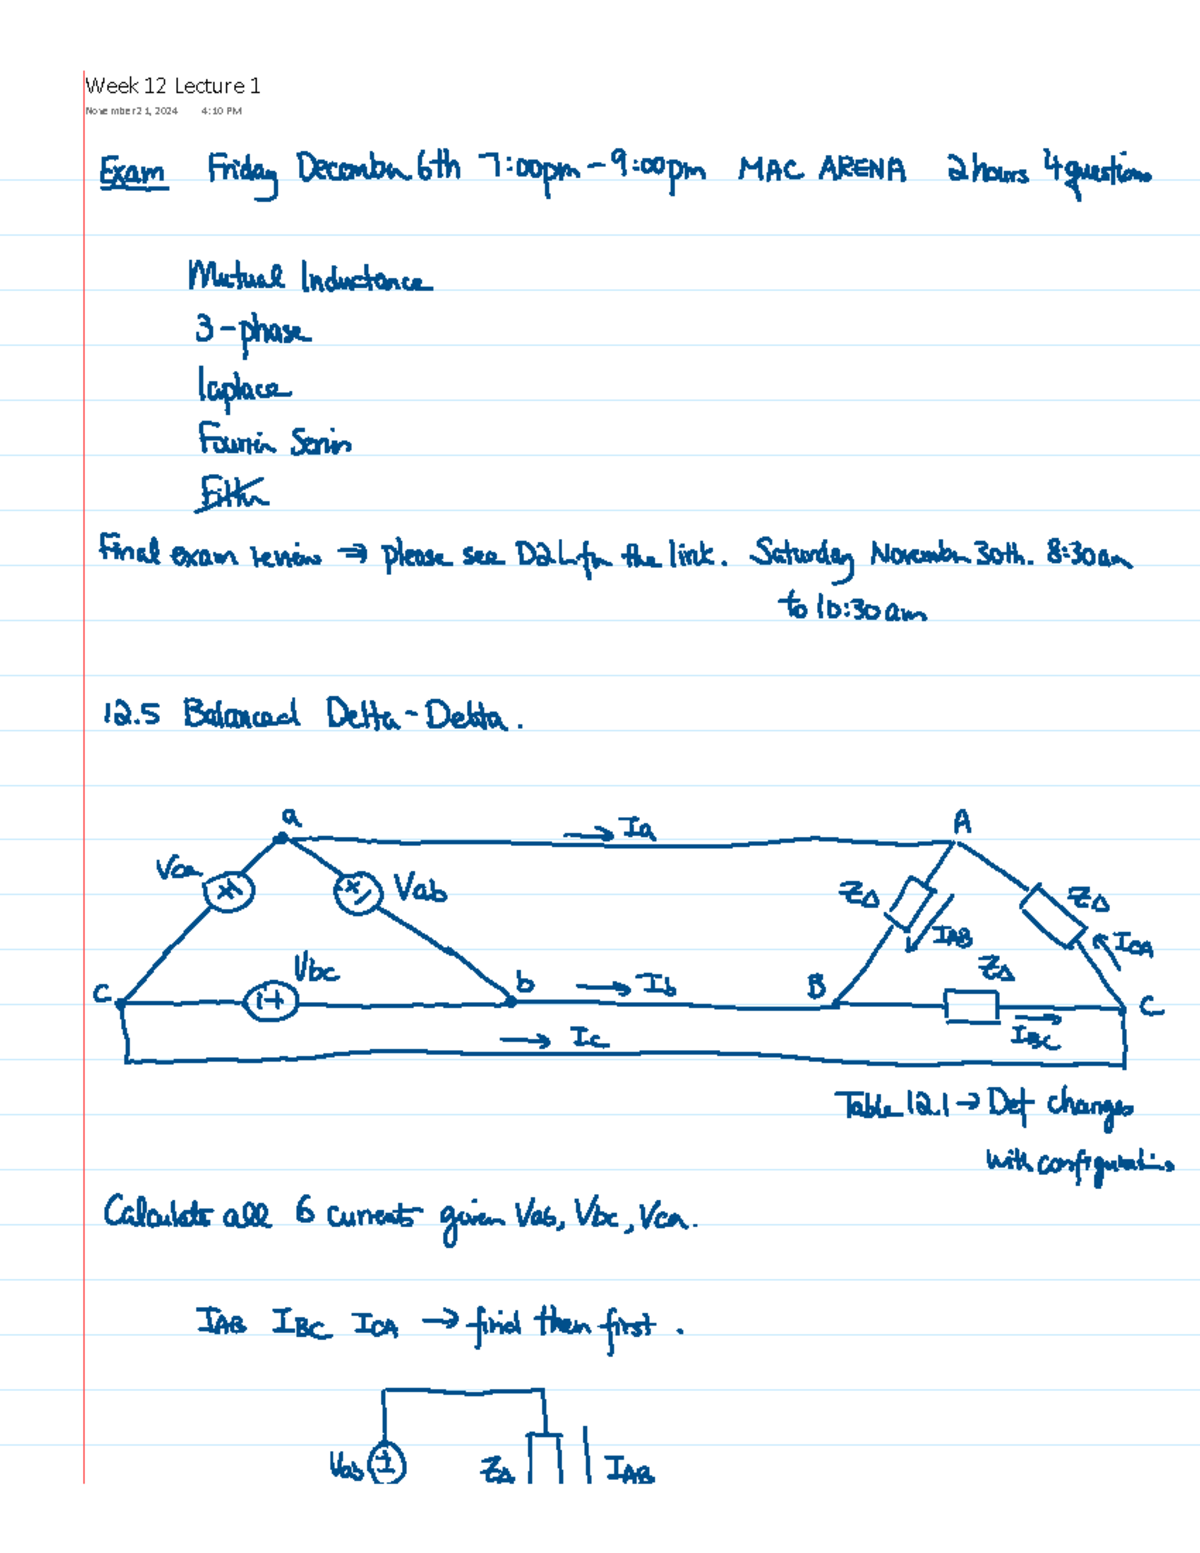 Week 12 Lecture 1
November 21, 2024 4:10 PM
Exam Friday December 6th 7:00pm - 9:00pm MAC ARENA 2 hours 4 questions
Mutual Inductance
3-phase
Laplace
Fourier Series
Filter
Final exam review ⇒ please see D2L for the link. Saturday November 30th. 8:30am
to 10:30am
12.5 Balanced Delta-Delta.
a → Ia A
Vca + - + - Vab ZΔ ZΔ
IAB ICA
Vbc ZΔ
c - + b → Ib B C
→ Ic IBC
Table 12.1 → Def changes
with configuration
Calculate all 6 currents given Vab, Vbc, Vca.
IAB IBC ICA → find them first.
Vab + - ZΔ IAB